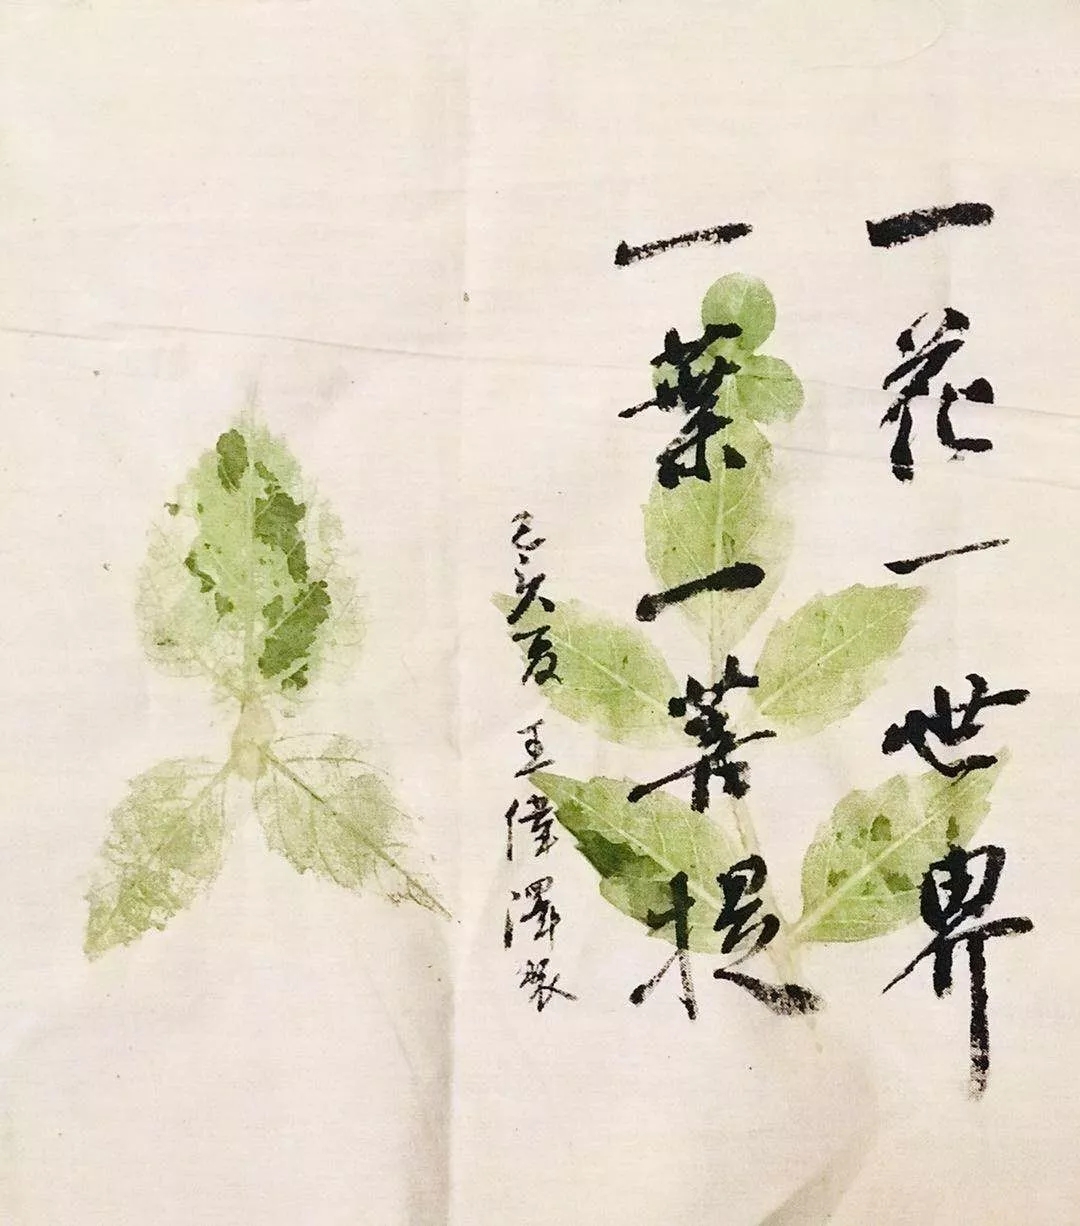 一花一世界
一葉一菩提
己亥夏 王偉澤